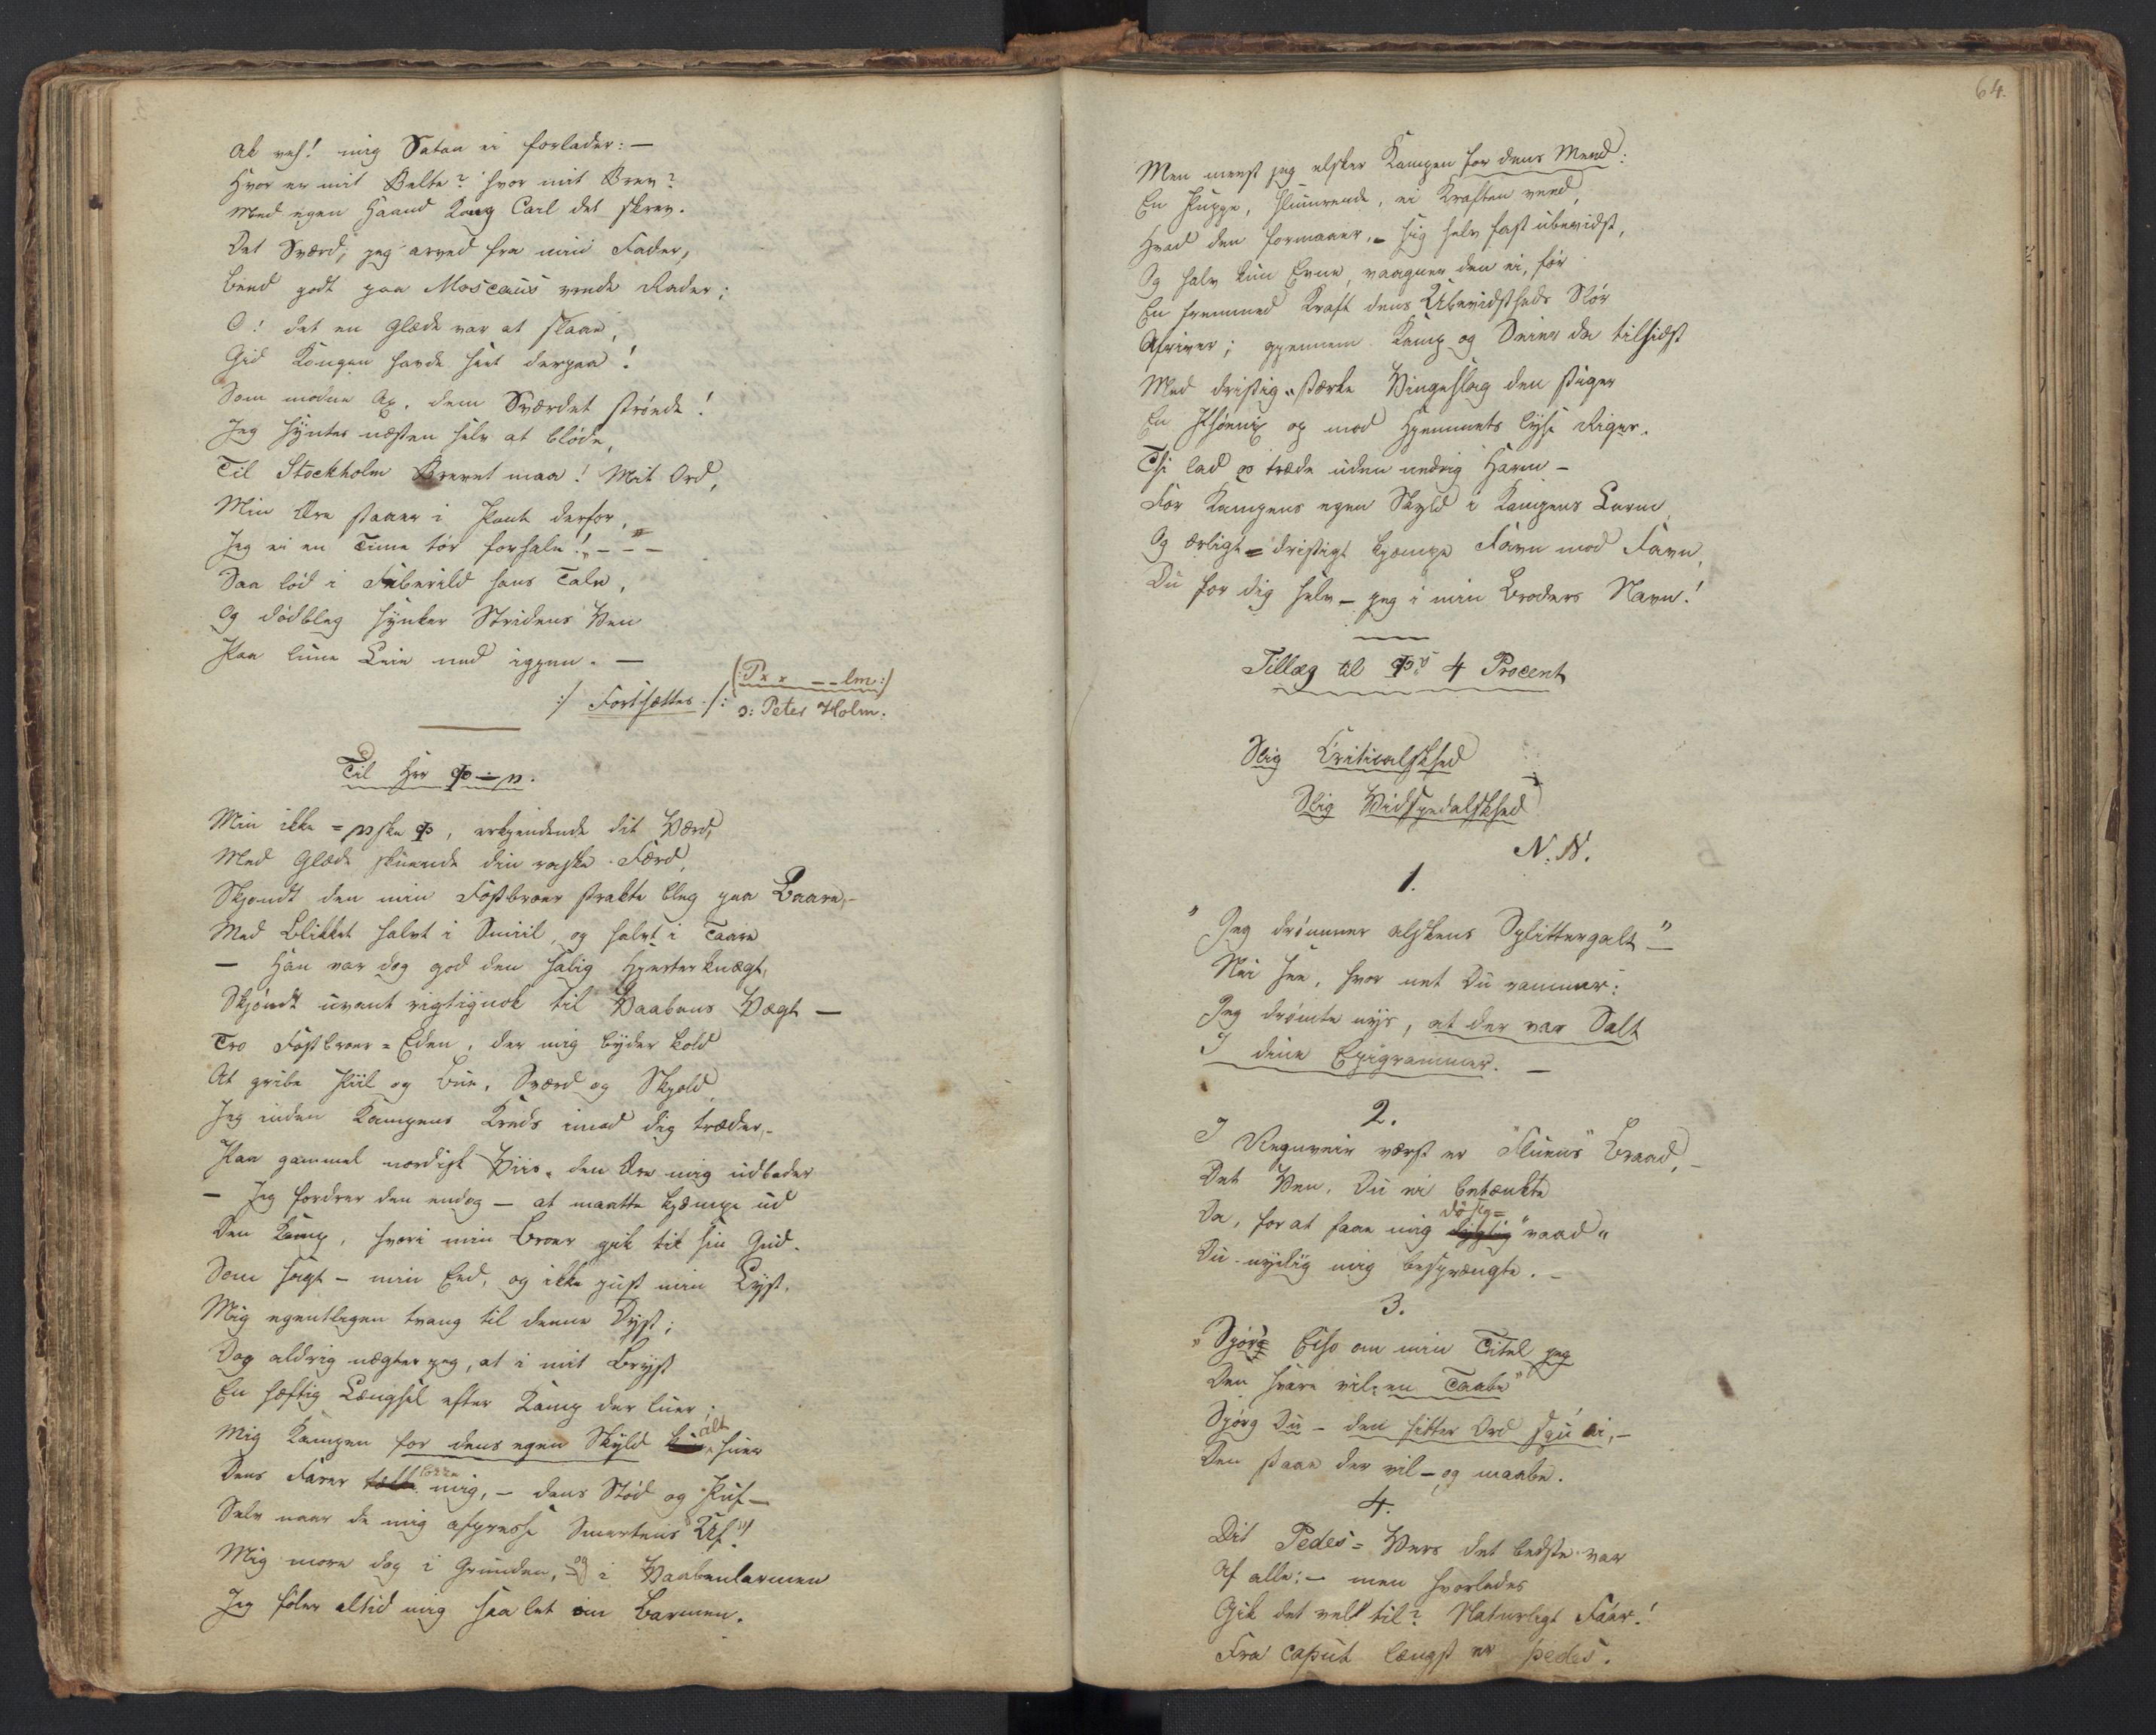 Ak veh! mig Satan ei forlader: —
Hvor er mit Belte? hvor mit Brev?
Med egen Haand Kong Carl det skrev.
Det Sværd, jeg arved fra min Fader,
Beed godt paa Moscaus vrede Rader;
O! det en Glæde var at skaae,
Gid Kongen havde seet derpaa!
Som modne Ax, dem Sværdet strøede!
Jeg syntes næsten selv at bløde,
Til Stockholm Brevet maa! Mit Ord,
Min Ære staaer i Pant derfor,
Jeg ei en Time tør forhale! — — —
Saa lød i Feberild hans Tale,
Og dødbleg synker Stridens Ven
Paa lune Leie ned igjen. —
(: P x x — — lm :)
:/ Fortsættes /: ɔ: Peter Holm.
Til Hrr φ — n.
Min ikke = nske φ, erkjendende dit Værd,
Med Glæde skuende din raske Færd,
Skjøndt den min Fostbroer strakte bleg paa Baare, —
Med Blikket halvt i Smiil, og halvt i Taare
— Han var dog god den salig Hjerterknægt,
Skjøndt uvant rigtignok til Vaabens Vægt —
Tro Fostbroer = Eden, der mig byder bold
At gribe Piil og Bue, Sværd og Skjold,
Jeg inden Kampens Kreds imod dig træder, —
Paa gammel nordisk Viis, den Ære mig udbeder
— Jeg fordrer den endog — at maatte kjæmpe ud
Den Kamp, hvori min Broer gik til sin Gud.
Som sagt — min Eed, og ikke just min Lyst,
Mig egentligen tvang til denne Dyst;
Dog aldrig nægter jeg, at i mit Bryst
En hæftig Længsel efter Kamp der luer;
Mig Kampen for dens egen Skyld alt huer
Dens Farer mig, — dens Stød og Puf —
Selv naar de mig afpresse Smertens "Uf!"
Mig more dog i Grunden, — og i Vaabenlarmen
Jeg føler altid mig saa let om Barmen.
64.
Men meest jeg elsker Kampen for dens Meed:
En Puppe, slumrende, ei Kraften veed,
Hvad den formaaer, — sig selv fast ubevidst,
Og selv kun Evne, vaagner den ei, før
En fremmed Kraft dens Ubevidstheds Slør
Afriver; gjennem Kamp og Seier da tilsidst
Med dristig-stærke Vingeslag den stiger
En Phønix op mod Hjemmets lyse Riger.
Thi lad os træde uden nedrig Harm —
For Kampens egen Skyld i Kampens Larm,
Og ærligt = dristigt kjæmpe Favn mod Favn,
Du for dig selv — jeg i min Broders Navn!
Tillæg til φs 4 Procent
Slig Criticalskhed
Slig Vidspedalskhed
N. N.
1.
"Jeg drømmer alskens Splittergalt" —
Nei see, hvor net Du rammer:
Jeg drømte nys, at der var Salt
I dine Epigrammer. —
2.
I Regnveir værst er "Fluens" Braad, —
Det Ven, Du ei betænkte
Da, for at faae mig døsig= "vaad"
Du nylig mig besprængte. —
3.
"Spørg Eiso om min Titel jeg
Den svare vil, en Taabe"
Spørg Du — den sitter Ord sgu ei, —
Den staae der vil — og maabe.
4.
Dit Pedes = Vers det bedste var
Af alle: — men hvorledes
Gik det vel til? Naturligt Faer!
Fra caput længst er pedes.